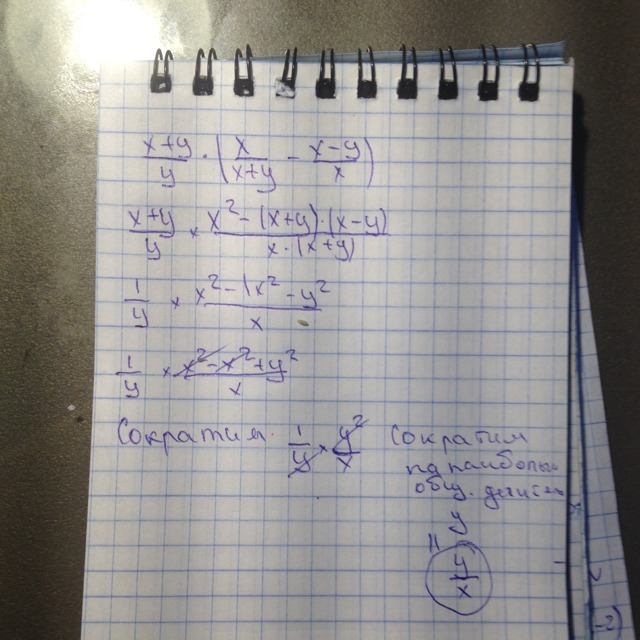 x+y/y · (x/x+y - x-y/x)
x+y/y × x² - (x+y)·(x-y)/x·(x+y)
1/y × x² - (x² - y²/x
1/y × x² - x² + y²/x
Сократим. 1/y × y²/x Сократим
на наибольш
общ.
y
= y/x